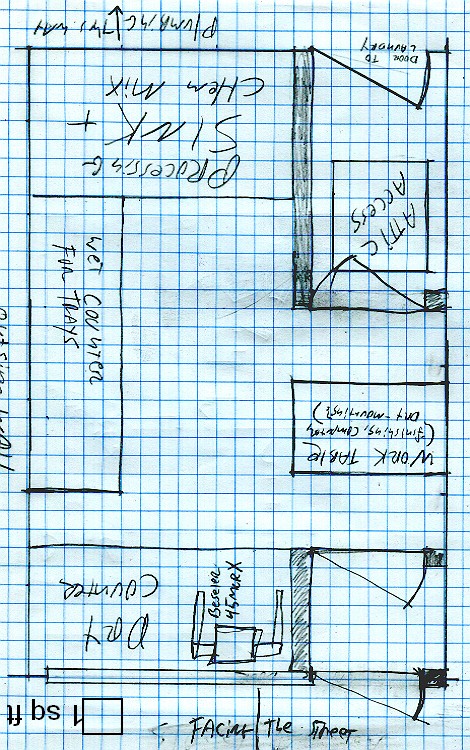 PLUMBING
THIS WAY
DOOR
TO
LAUNDRY
PROCESSING
SINK +
CHEM MIX
ATTIC
ACCESS
WET COUNTER
FOR TRAYS
OUTSIDE WALL
WORK TABLE
(finishing, computer
DRY-mounting?)
DRY
COUNTER
Beseler
45MRX
1 sq ft
FACING THE STREET